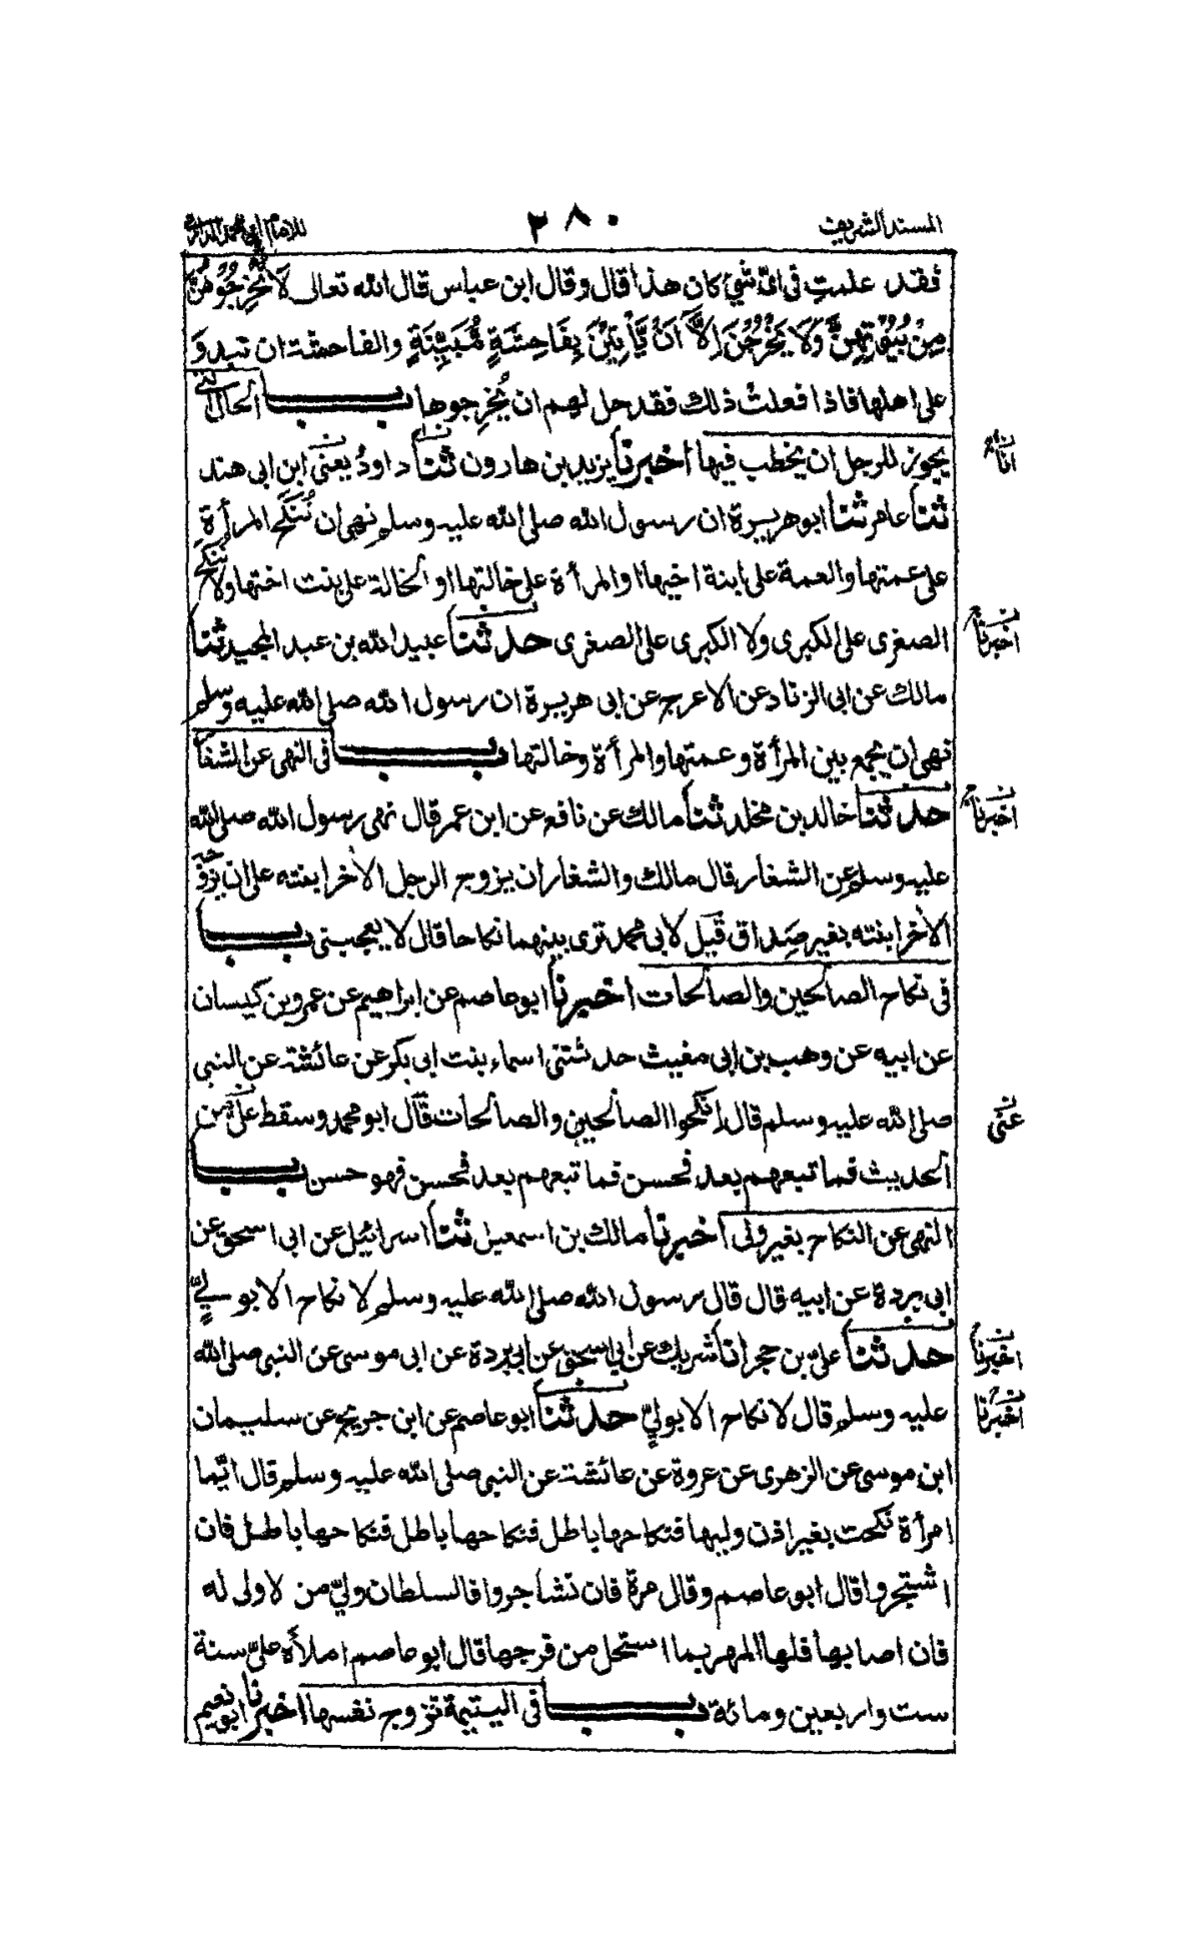 المسند الشريف
٢٨٠
للامام ابي محمد الدارمي
فقد علمتِ فى اىّ شئ كان هذا قال وقال ابن عباس قال الله تعالى لَا تُخْرِجُوْهُنَّ
مِنْ بُيُوْتِهِنَّ وَلَا يَخْرُجْنَ اِلَّا اَنْ يَّأْتِيْنَ بِفَاحِشَةٍ مُّبَيِّنَةٍ والفاحشة ان تبدوَ
على اهلها فاذا فعلتْ ذلك فقد حل لهم ان يُخرِجوها بـــاب الحال التى
يجوز للرجل ان يخطب فيها اخبرنا يزيد بن هارون ثنا داودُ يعنى ابن ابى هند
انا
ثنا عامر ثنا ابو هريرة ان رسول الله صلى الله عليه وسلم نهى ان تُنْكَح المرأةِ
على عمتها والعمة على ابنة اخيها او المرأة على خالتها او الخالة على بنت اختها ولا تنكح
الصغرى على الكبرى ولا الكبرى على الصغرى حدثنا عبيد الله بن عبد المجيد ثنا
اخبرنا
مالك عن ابى الزناد عن الاعرج عن ابى هريرة ان رسول الله صلى الله عليه وسلم
نهى ان يجمع بين المرأة وعمتها والمرأة وخالتها بـــاب فى النهى عن الشغار
حدثنا خالد بن مخلد ثنا مالك عن نافع عن ابن عمر قال نهى رسول الله صلى الله
اخبرنا
عليه وسلم عن الشغار قال مالك والشغار ان يزوج الرجل الأخر ابنته على ان يزوجه
الأخر ابنته بغير صِداق قيل لابى محمد ترى بينهما نكاحا قال لا يعجبنى بـــاب
فى نكاح الصالحين والصالحات اخبرنا ابو عاصم عن ابراهيم عن عمرو بن كيسان
عن ابيه عن وهب بن ابى مغيث حدثتنى اسماء بنت ابى بكر عن عائشة عن النبى
صلى الله عليه وسلم قال اِنكحوا الصالحين والصالحات قال ابو محمد وسقط علىّ من
عنى
الحديث فما تبعهم بعد فحسن فما تبعهم بعد فحسن فهو حسن بـــاب
النهى عن النكاح بغير ولى اخبرنا مالك بن اسمعيل ثنا اسرائيل عن ابى اسحق عن
ابى بردة عن ابيه قال قال رسول الله صلى الله عليه وسلم لا نكاح الا بولىّ
حدثنا علىّ بن حجر انا شريك عن ابى اسحق عن ابى بردة عن ابى موسى عن النبى صلى الله
اخبرنا
عليه وسلم قال لا نكاح الا بولىّ حدثنا ابو عاصم عن ابن جريج عن سليمان
اخبرنا
ابن موسى عن الزهرى عن عروة عن عائشة عن النبى صلى الله عليه وسلم قال ايّما
امرأة نكحت بغير اذن وليها فنكاحها باطل فنكاحها باطل فنكاحها باطل فان
اشتجروا قال ابو عاصم وقال مرة فان تشاجروا فالسلطان ولىّ من لا ولى له
فان اصابها فلها المهر بما استحل من فرجها قال ابو عاصم املاَه علىّ سنة
ست واربعين ومائة بـــاب فى اليتيمة تزوج نفسها اخبرنا ابو نعيم